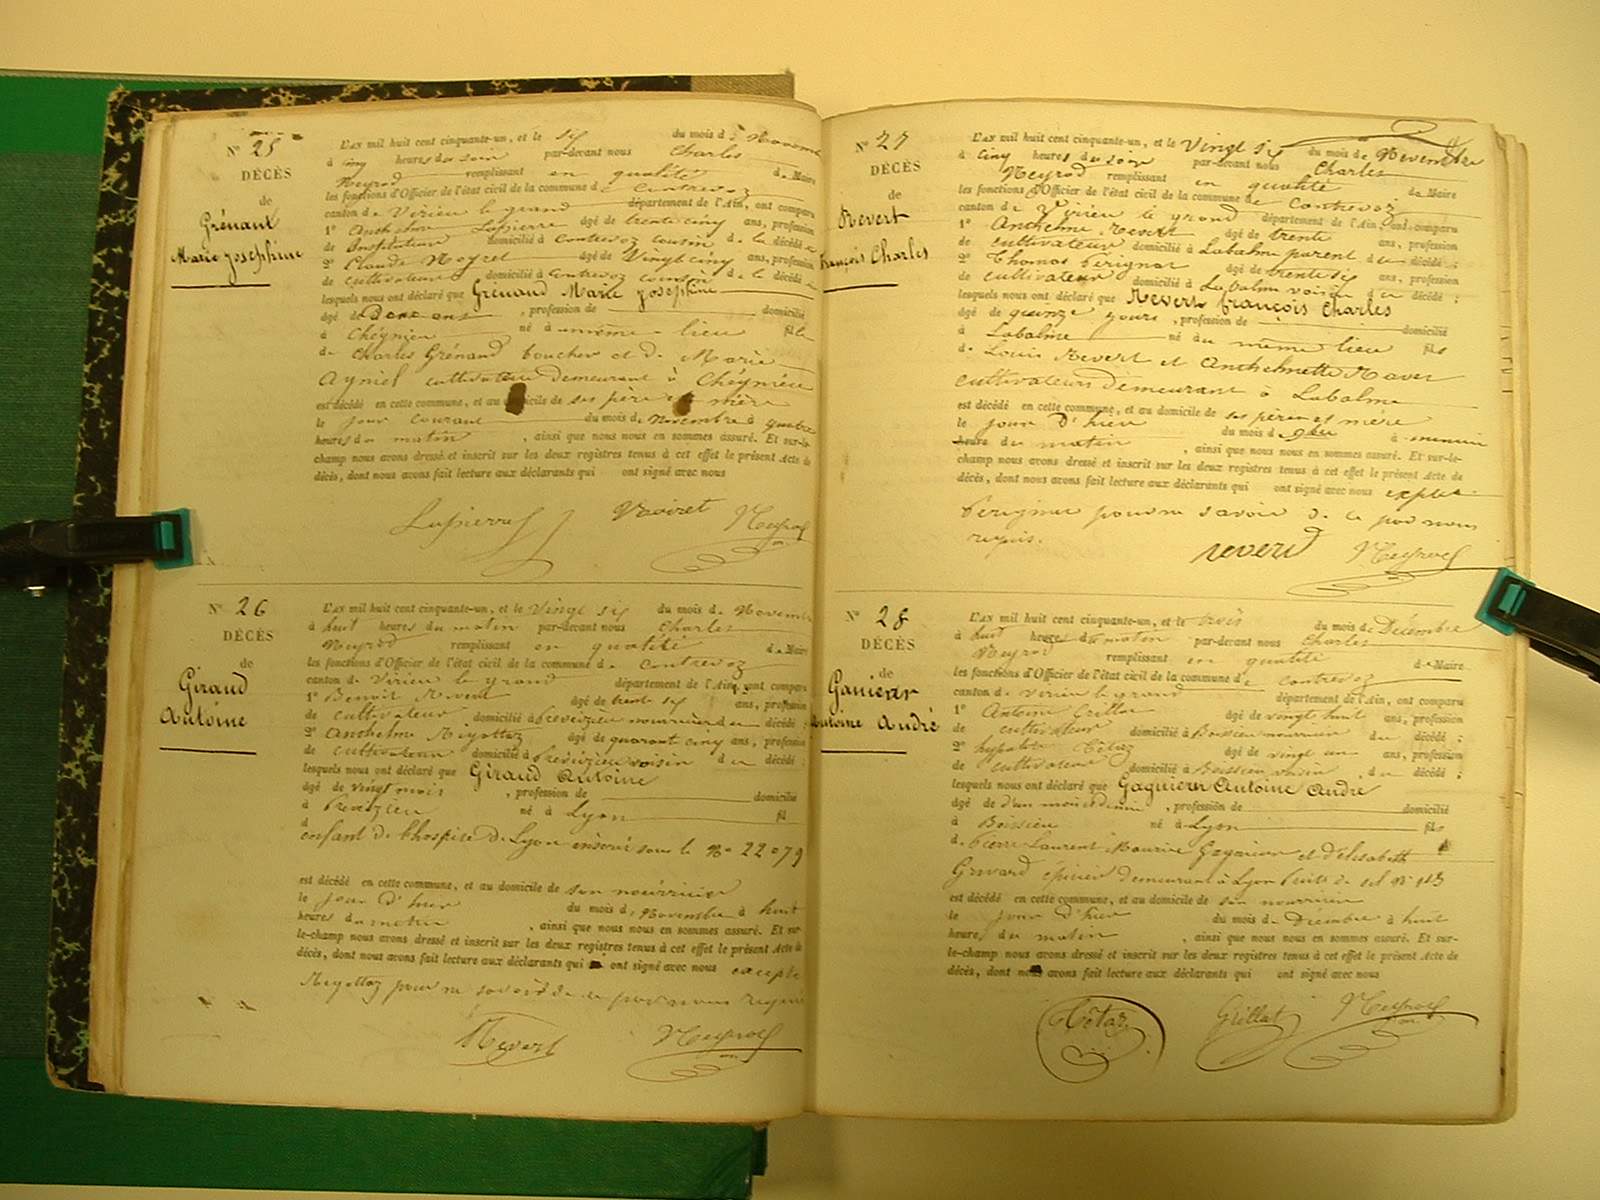 N° 25
DÉCÈS
de
Grénaud
Marie Josephine
L'AN mil huit cent cinquante-un, et le six du mois de Novemb
à cinq heures du soir par-devant nous Charles
Neyrod remplissant en qualité de Maire
les fonctions d'Officier de l'état civil de la commune de Contrevoz
canton de Virieu le grand département de l'Ain, ont comparu
1° Anthelme Lapierre âgé de trente cinq ans, profession
de Instituteur domicilié à Contrevoz cousin de la décédée
2° Claude Neyret âgé de Vingt cinq ans, profession
de cultivateur domicilié à Contrevoz cousin de la décédée
lesquels nous ont déclaré que Grénaud Marie Josephine
âgé de Deux ans , profession de domicilié
à Chéynieu né à même lieu fille
de Charles Grénaud boucher et de Marie
Ayniel cultivateur demeurant à Chéynieu
est décédé en cette commune, et au domicile de ses père et mère
le jour courant du mois de Novembre à quatre
heures du matin , ainsi que nous nous en sommes assuré. Et sur-le-
champ nous avons dressé et inscrit sur les deux registres tenus à cet effet le présent Acte de
décès, dont nous avons fait lecture aux déclarants qui ont signé avec nous
Lapierre Neyrod
N° 26
DÉCÈS
de
Giraud
Antoine
L'AN mil huit cent cinquante-un, et le Vingt six du mois de Novemb
à huit heures du matin par-devant nous Charles
Neyrod remplissant en qualité de Maire
les fonctions d'Officier de l'état civil de la commune de Contrevoz
canton de Virieu le grand département de l'Ain, ont comparu
1° Benoit Revert âgé de trente six ans, profession
de cultivateur domicilié à Preveyzieu nourricier du décédé ;
2° Anthelme Meyottaz âgé de quarante cinq ans, profession
de cultivateur domicilié à Preveyzieu voisin du décédé ;
lesquels nous ont déclaré que Giraud Antoine
âgé de vingt mois , profession de domicilié
à Preveyzieu né à Lyon fil
d
enfant de l'hospice de Lyon inscrit sous le N° 22079
est décédé en cette commune, et au domicile de son nourricier
le jour d'hier du mois de Novembre à huit
heures du matin , ainsi que nous nous en sommes assuré. Et sur-
le-champ nous avons dressé et inscrit sur les deux registres tenus à cet effet le présent Acte de
décès, dont nous avons fait lecture aux déclarants qui ont signé avec nous excepté
Meyottaz pour ne savoir de ce par nous requis
Revert Neyrod
N° 27
DÉCÈS
de
Revert
François Charles
L'AN mil huit cent cinquante-un, et le Vingt six du mois de Novembre
à cinq heures du soir par-devant nous Charles
Neyrod remplissant en qualité de Maire
les fonctions d'Officier de l'état civil de la commune de Contrevoz
canton de Virieu le grand département de l'Ain, ont comparu
1° Anthelme Revert âgé de trente ans, profession
de cultivateur domicilié à Labalme parent du décédé ;
2° Thomas Pérignar âgé de trente six ans, profession
de cultivateur domicilié à Labalme voisin du décédé ;
lesquels nous ont déclaré que Revert François Charles
âgé de quinze jours , profession de domicilié
à Labalme né au même lieu fils
de Louis Revert et Anthelmette
cultivateurs demeurant à Labalme
est décédé en cette commune, et au domicile de ses père et mère
le jour d'hier du mois d à
heure du matin , ainsi que nous nous en sommes assuré. Et sur-le-
champ nous avons dressé et inscrit sur les deux registres tenus à cet effet le présent Acte de
décès, dont nous avons fait lecture aux déclarants qui ont signé avec nous excepté
Pérignar pour ne savoir de ce par nous
requis.
reverd Neyrod
N° 28
DÉCÈS
de
Antoine André
L'AN mil huit cent cinquante-un, et le trois du mois de Décembre
à huit heures du matin par-devant nous Charles
Neyrod remplissant en qualité de Maire
les fonctions d'Officier de l'état civil de la commune de Contrevoz
canton de Virieu le grand département de l'Ain, ont comparu
1° Antoine Grillat âgé de vingt huit ans, profession
de cultivateur domicilié à Boissieu nourricier du décédé ;
2° hypolite Têtaz âgé de vingt un ans, profession
de cultivateur domicilié à Boissieu voisin du décédé ;
lesquels nous ont déclaré que Gagnieur Antoine André
âgé de d'un mois et demi , profession de domicilié
à Boissieu né à Lyon fils
de Pierre Laurent Maurice Gagnieur et d'élisabeth
épicier demeurant à Lyon
est décédé en cette commune, et au domicile de son nourricier
le jour d'hier du mois de Décembre à huit
heure du matin , ainsi que nous nous en sommes assuré. Et sur-
le-champ nous avons dressé et inscrit sur les deux registres tenus à cet effet le présent Acte de
décès, dont nous avons fait lecture aux déclarants qui ont signé avec nous
Têtaz Grillat Neyrod